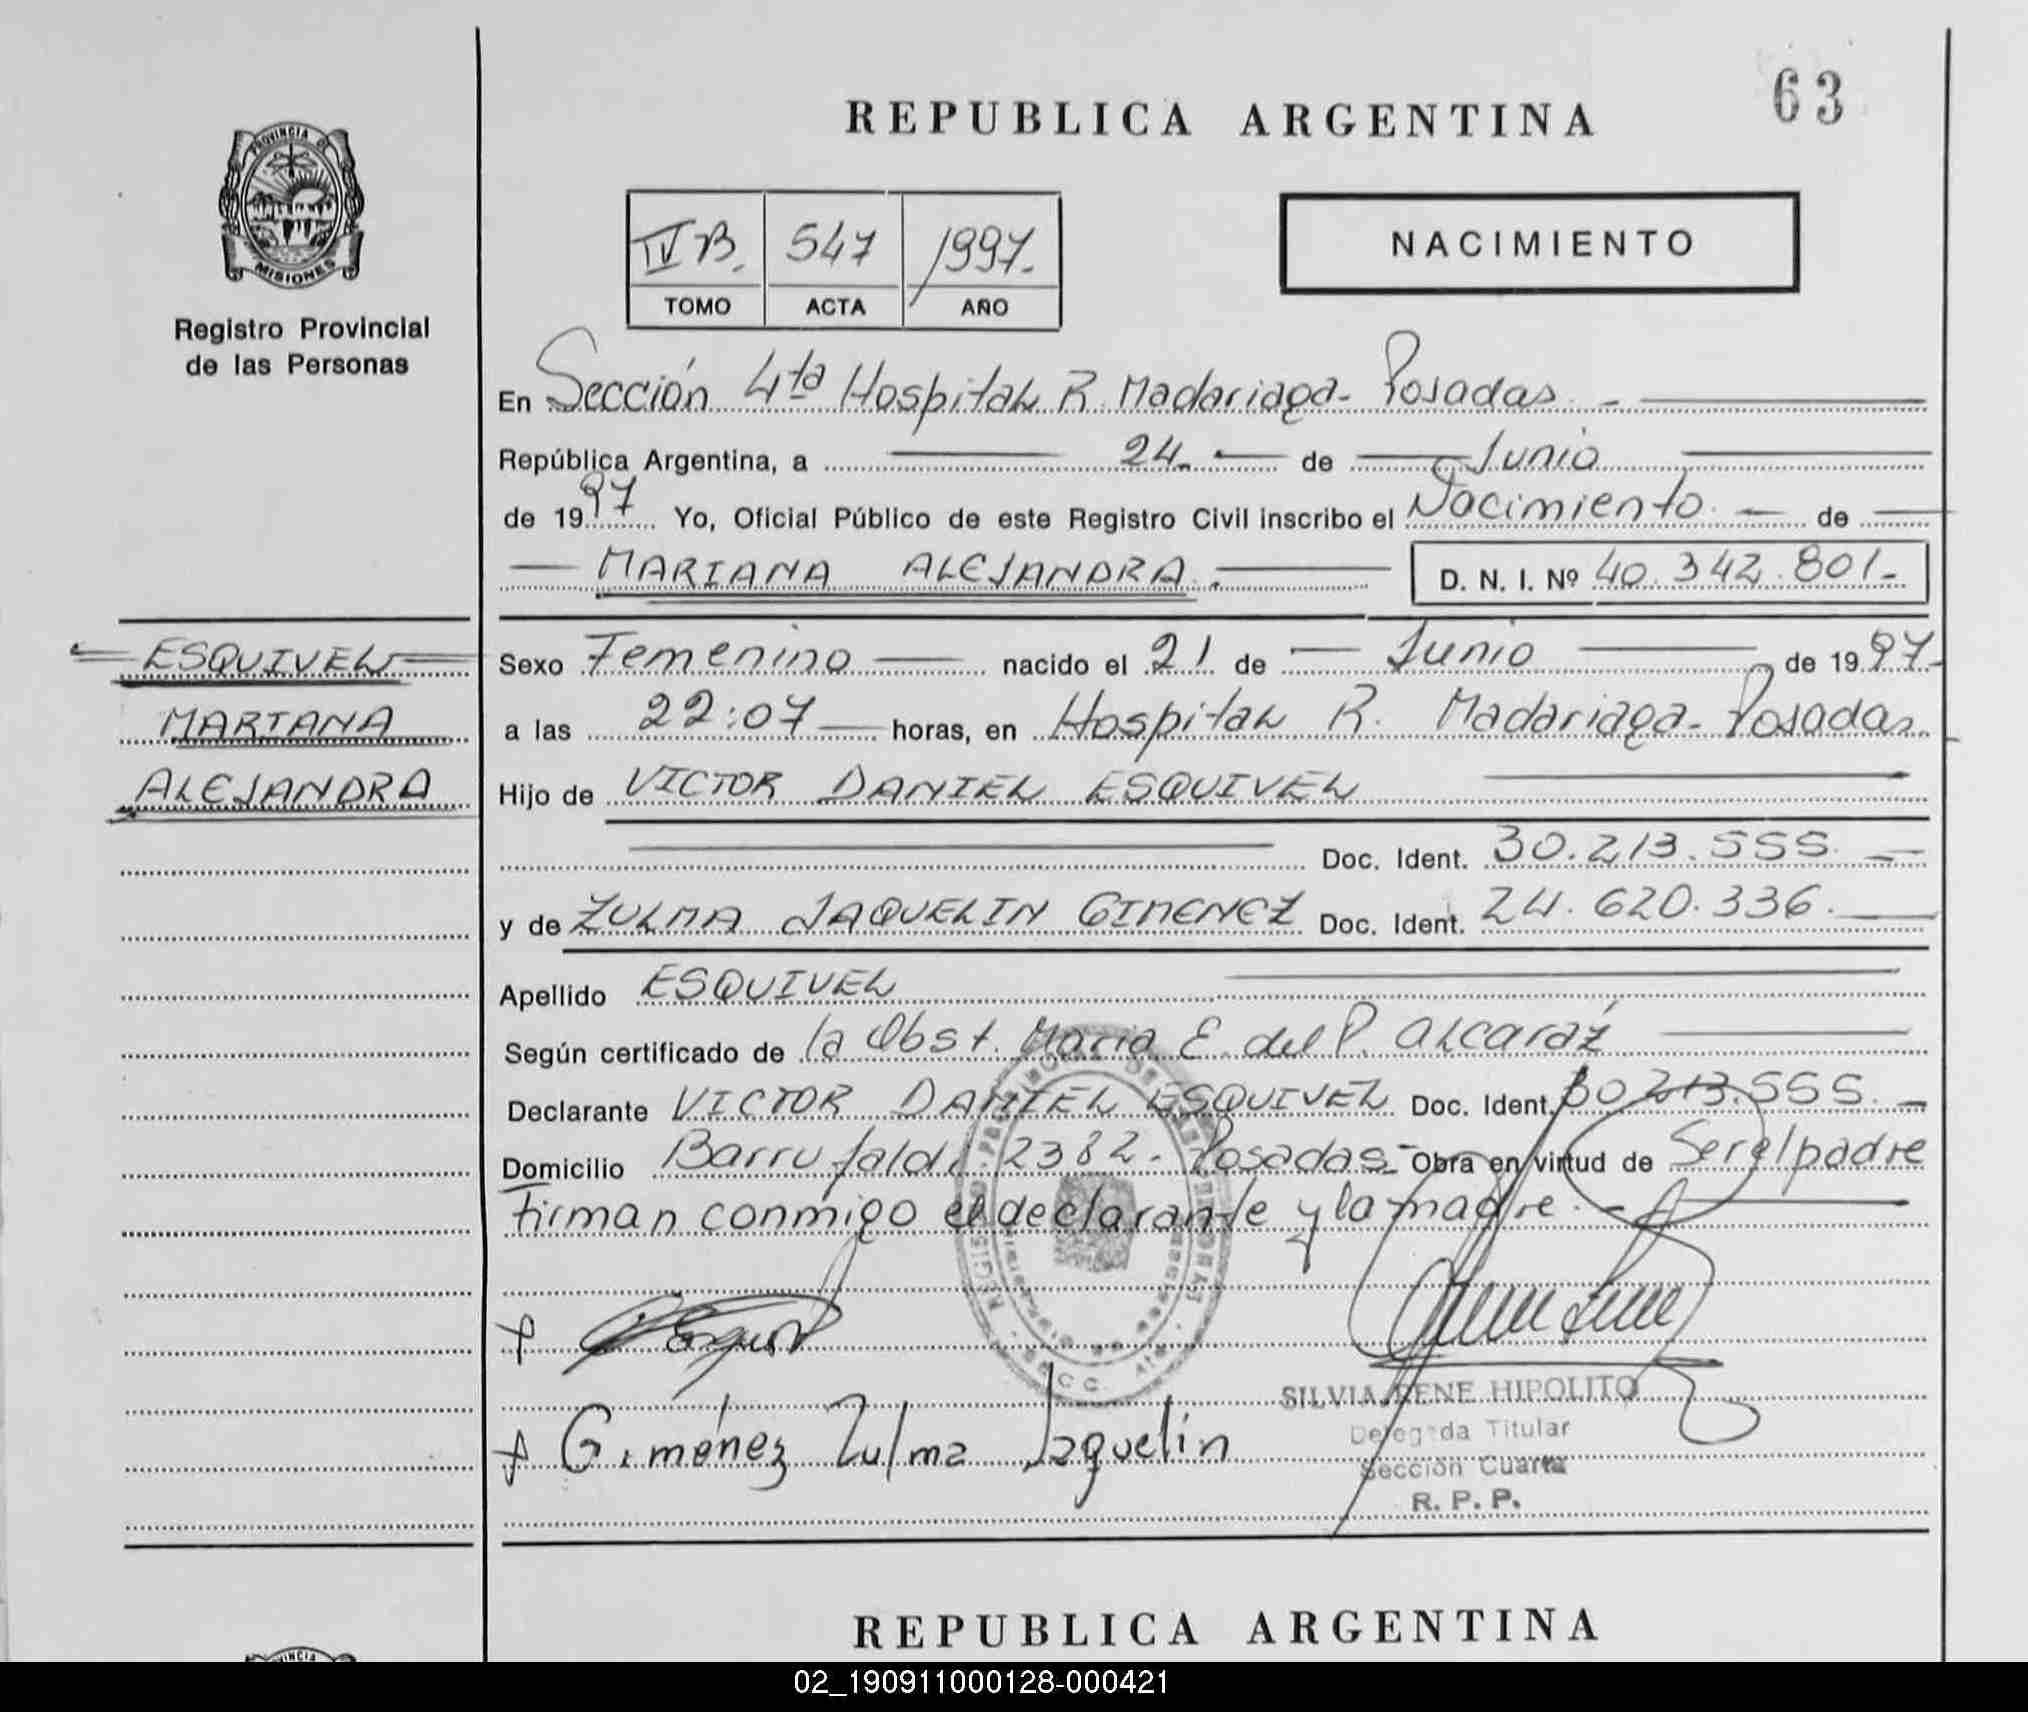 REPUBLICA ARGENTINA
63
PROVINCIA DE
MISIONES
Registro Provincial
de las Personas
IV B. 547 1997.
TOMO ACTA AÑO
NACIMIENTO
En Sección 4ta Hospital R. Madariaga - Posadas. -
República Argentina, a 24. - de Junio
de 1997 Yo, Oficial Público de este Registro Civil inscribo el Nacimiento. - de
MARIANA ALEJANDRA. D. N. I. Nº 40.342.801.-
ESQUIVEL
MARIANA
ALEJANDRA
Sexo Femenino nacido el 21 de Junio de 1997-
a las 22:07 horas, en Hospital R. Madariaga - Posadas.
Hijo de VICTOR DANIEL ESQUIVEL
Doc. Ident. 30.213.555. -
y de ZULMA JAQUELIN GIMENEZ Doc. Ident. 24.620.336.
Apellido ESQUIVEL
Según certificado de la Obst. Maria E. del P. Alcaráz
Declarante VICTOR DANIEL ESQUIVEL Doc. Ident. 30.213.555. -
Domicilio Barrufaldi 2382 - Posadas - Obra en virtud de Ser el padre
Firman conmigo el declarante y la madre. -
Giménez Zulma Jaquelin
SILVIA RENE HIPOLITO
Delegada Titular
Sección Cuarta
R. P. P.
REPUBLICA ARGENTINA
02_190911000128-000421